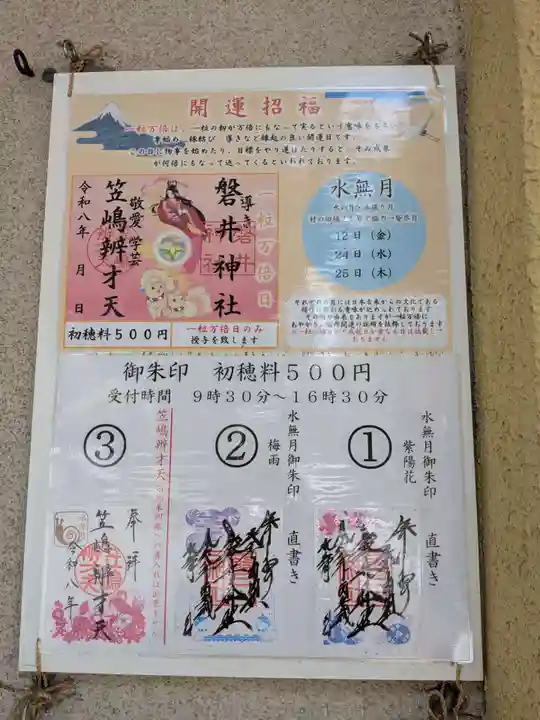 開運招福
一粒万倍は、一粒の籾が万倍にもなって実るという意味をもち
事始め、縁結び 導きなど縁起の良い開運日です。
この日に物事を始めたり、目標をやり遂げたりすると、その成果
が何倍にもなって返ってくるといわれております。
一粒万倍日
導き
磐井神社
敬愛 学芸
笠嶋辨才天
令和八年 月 日
初穂料500円
一粒万倍日のみ
授与を致します
水無月
12日(金)
24日(水)
25日(木)
御朱印 初穂料500円
受付時間 9時30分~16時30分
①
水無月御朱印
紫陽花
直書き
②
水無月御朱印
梅雨
直書き
笠嶋辨才天
③
奉拝
笠嶋辨才天
令和八年